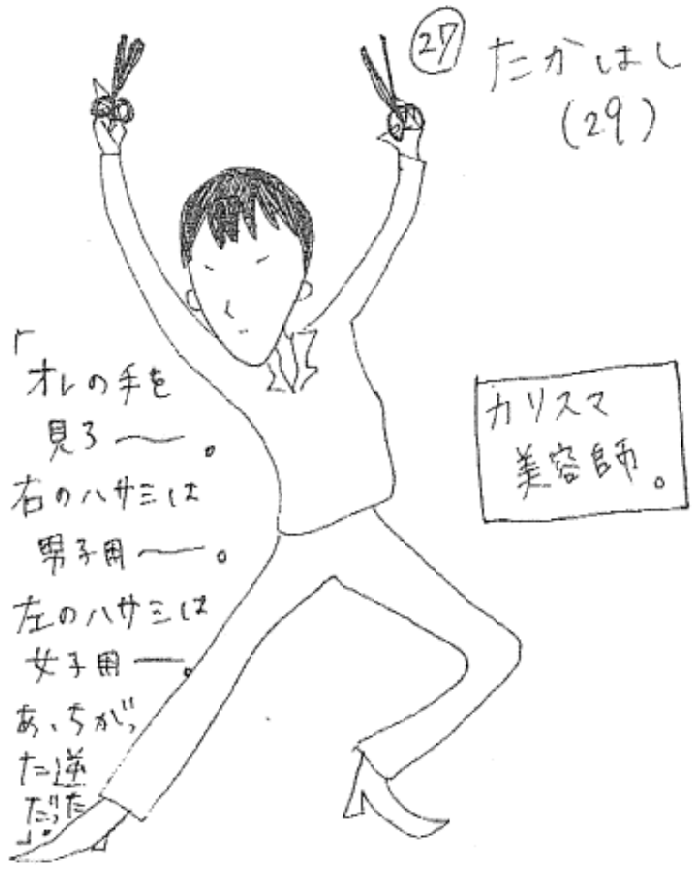 ㉗
たかはし
(29)
「オレの手を
見ろ〜。
右のハサミは
男子用〜。
左のハサミは
女子用ー。
あ、ちがっ
た逆
だった
。」
カリスマ
美容師。